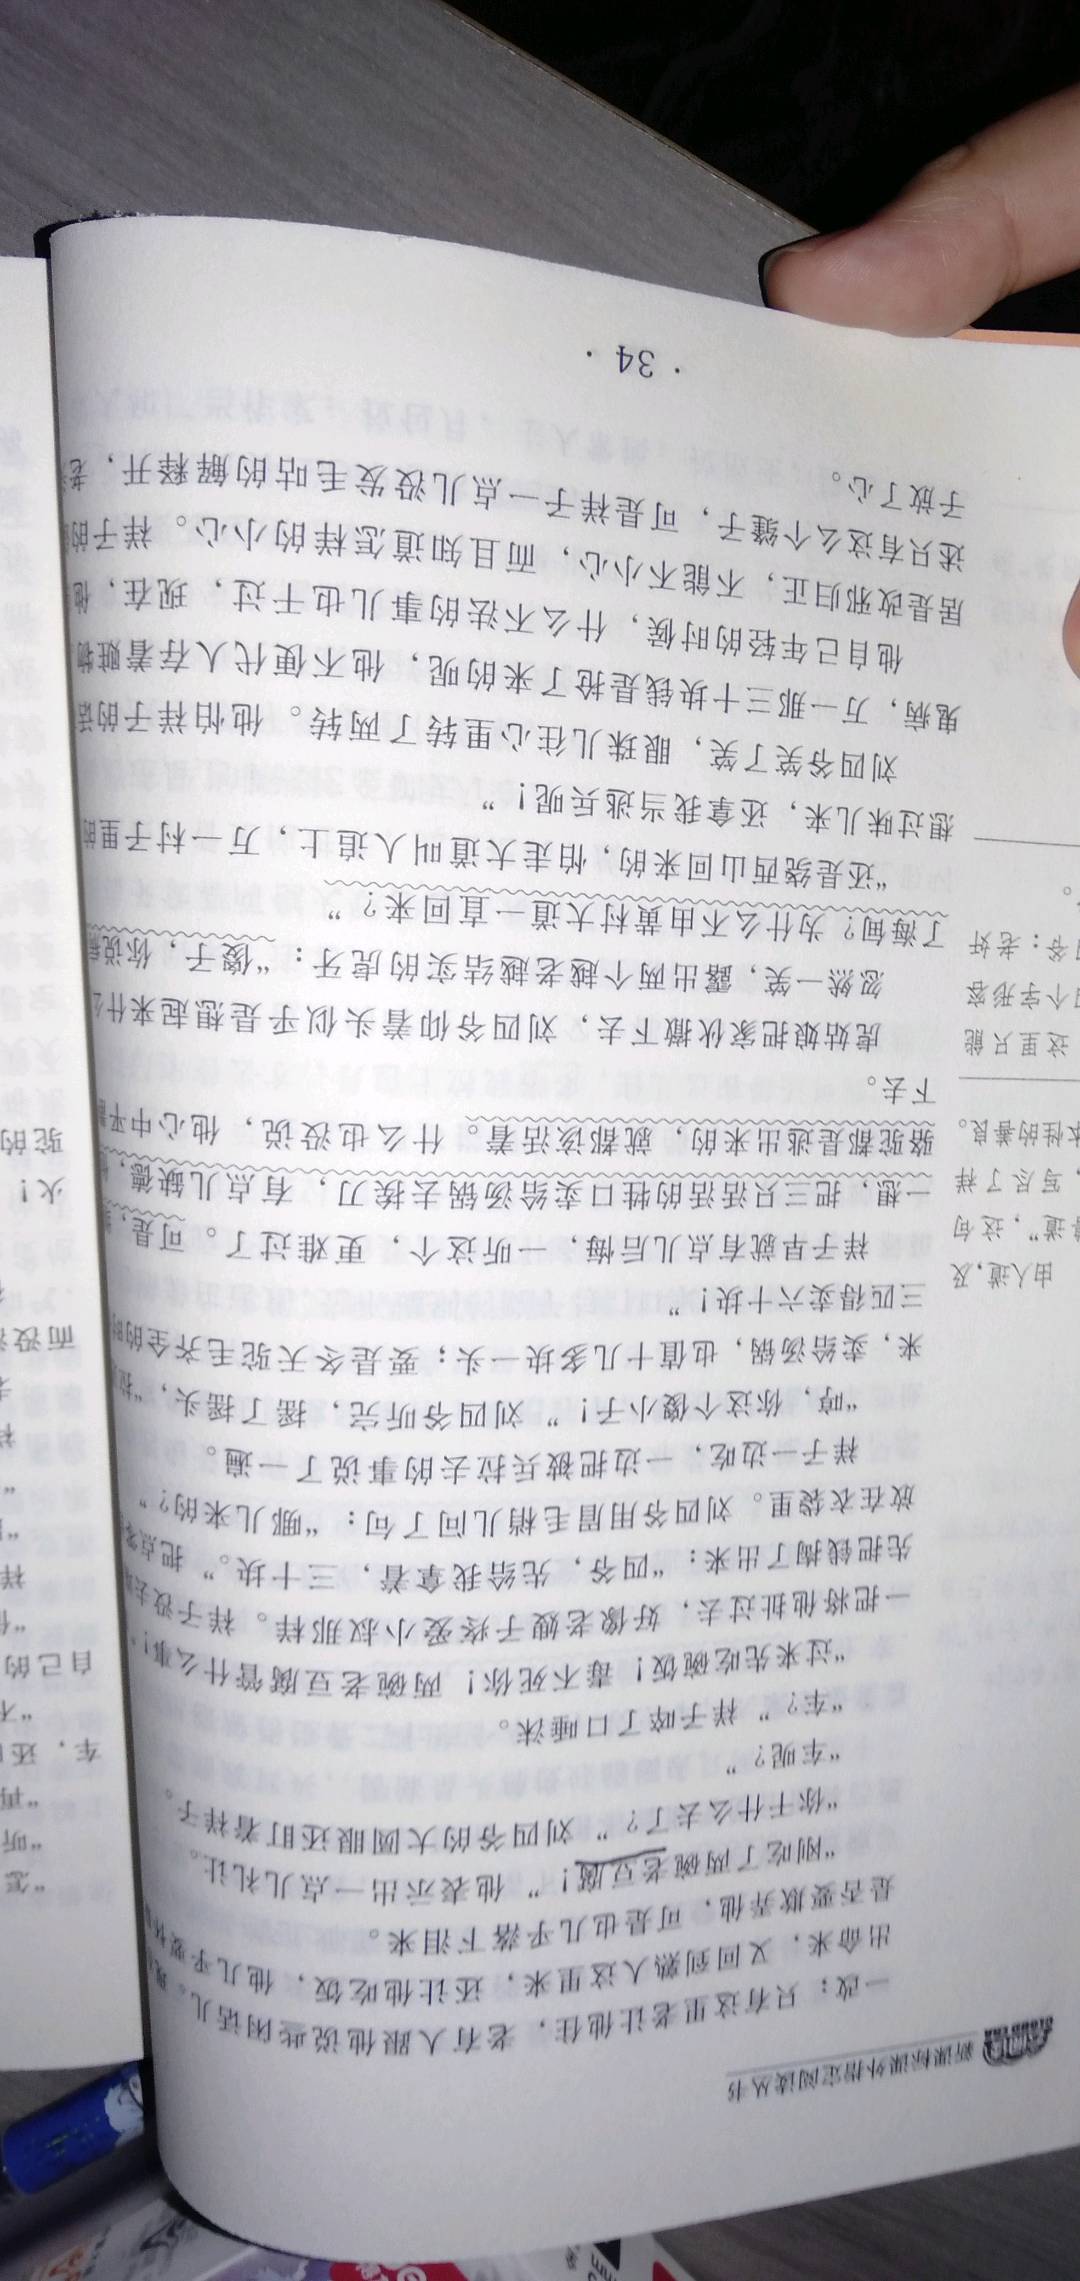 新课标课外指定阅读丛书
一改：只有这里老让他住，老有人跟他说些闲话儿。
出命来，又回到熟人这里来，还让他吃饭，他几乎要
是否要欺弄他，可是也几乎落下泪来。
“刚吃了两碗老豆腐！”他表示出一点儿礼让。
“你干什么去了？”刘四爷的大圆眼还盯着祥子。
“车呢？”
“车？”祥子啐了口唾沫。
“过来先吃碗饭！毒不死你！两碗老豆腐管什么事！
一把将他扯过去，好像老嫂子疼爱小叔那样。祥子没去
先把钱掏了出来：“四爷，先给我拿着，三十块。”把点零
放在衣袋里。刘四爷用眉毛梢儿问了句：“哪儿来的？”
祥子一边吃，一边把被兵拉去的事说了一遍。
“哼，你这个傻小子！”刘四爷听完，摇了摇头，“拉
来，卖给汤锅，也值十几多块一头；要是冬天驼毛齐全的时
三匹得卖六十块！”
祥子早就有点儿后悔，一听这个，更难过了。可是，
一想，把三只活活的牲口卖给汤锅去挨刀，有点儿缺德，
骆驼都是逃出来的，就都该活着。什么也没说，他心中平
下去。
虎姑娘把家伙撤下去，刘四爷仰着头似乎是想起来什么
忽然一笑，露出两个越老越结实的虎牙：“傻子，你说
了海甸？为什么不由黄村大道一直回来？”
“还是绕西山回来的，怕走大道叫人追上，万一村子里的
想过味儿来，还拿我当逃兵呢！”
刘四爷笑了笑，眼珠儿往心里转了两转。他怕祥子的话
鬼病，万一那三十块钱是抢了来的呢，他不便代人存着赃物
他自己年轻的时候，什么不法的事儿也干过，现在，他
居是改邪归正，不能不小心，而且知道怎样的小心。祥子的
还只有这么个缝子，可是祥子一点儿没发毛咕的解释开，老
子放了心。
· 34 ·
由人道，及
道”，这句
，写尽了祥
本性的善良。
这里只能
个字形容
四爷：老奸
。
“怎
“听
“再
车，还
“不
自己的
祥
而没
火！
驼的